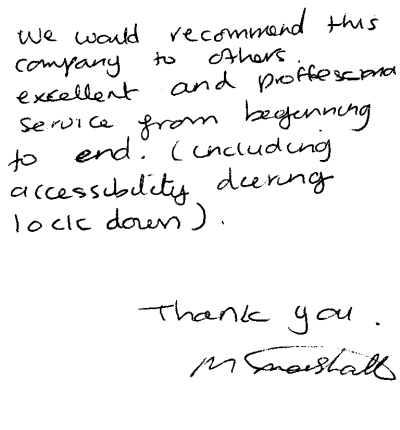 We would recommend this
company to others.
excellent and proffessional
service from beginning
to end. (including
accessibility during
lock down).
Thank you.
M Marshall